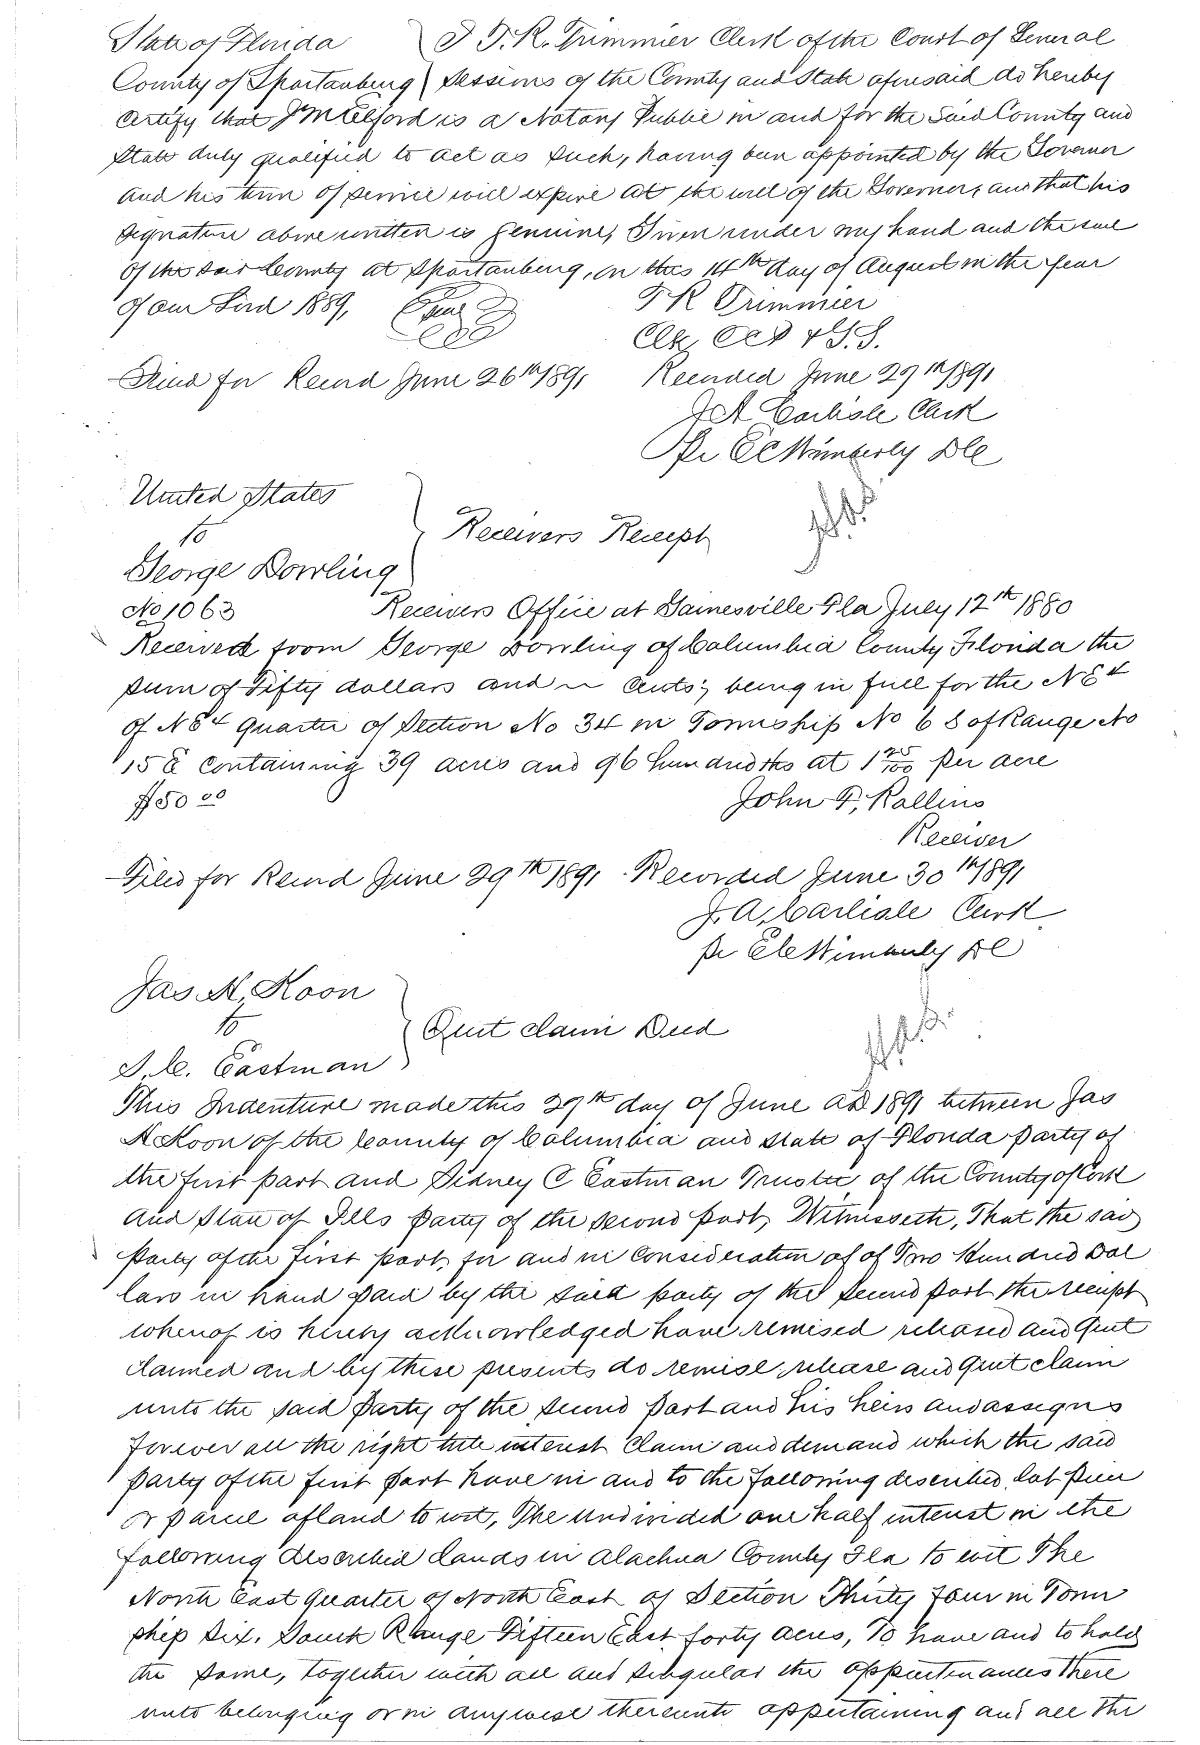 State of Florida } I T. R. Trimmier Clerk of the Court of General
County of Spartanburg } Sessions of the County and State aforesaid do hereby
certify that J M Elford is a Notary Public in and for the Said County and
State duly qualified to act as such, having been appointed by the Governor
and his term of service will expire at the will of the Governor, and that his
signature above written is genuine, Given under my hand and the seal
of the said County at Spartanburg, on this 14th day of August in the year
of our Lord 1889, Seal T R Trimmier
Clk C C P & G. S.
Filed for Record June 26th 1891 Recorded June 29th 1891
J A Carlisle Clerk
Pr E C Wimberly D C
United States
to } Receivers Receipt
George Dowling
No 1063 Receivers Office at Gainesville Fla July 12th 1880
Received from George Dowling of Columbia County Florida the
sum of Fifty dollars and — Cents; being in full for the N E 4
of N E 4 Quarter of Section No 34 in Township No 6 S of Range No
15 E containing 39 acres and 96 hundredths at 1 25/100 per acre
$50 00 John F. Rollins
Receiver
Filed for Record June 29th 1891 Recorded June 30th 1891
J. A. Carlisle Clerk
Pr E C Wimberly D C
Jas N. Koon
to } Quit claim Deed
S. C. Eastman
This Indenture made this 29th day of June AD 1891 between Jas
N Koon of the County of Columbia and State of Florida party of
the first part and Sidney C Eastman Trustee of the County of Cork
and State of Ills party of the second part, Witnesseth, That the said
party of the first part, for and in consideration of of Two Hundred Dol
lars in hand paid by the said party of the second part the receipt
whereof is hereby acknowledged have remised released and Quit
claimed and by these presents do remise release and Quit claim
unto the said party of the second part and his heirs and assigns
forever all the right title interest claim and demand which the said
party of the first part have in and to the following described lot piece
or parcel of land to wit, The undivided one half interest in the
following described lands in Alachua County Fla to wit The
North East Quarter of North East of Section Thirty four in Town
ship six. South Range Fifteen East forty acres, To have and to hold
the same, together with all and singular the appurtenances there
unto belonging or in anywise thereunto appertaining and all the